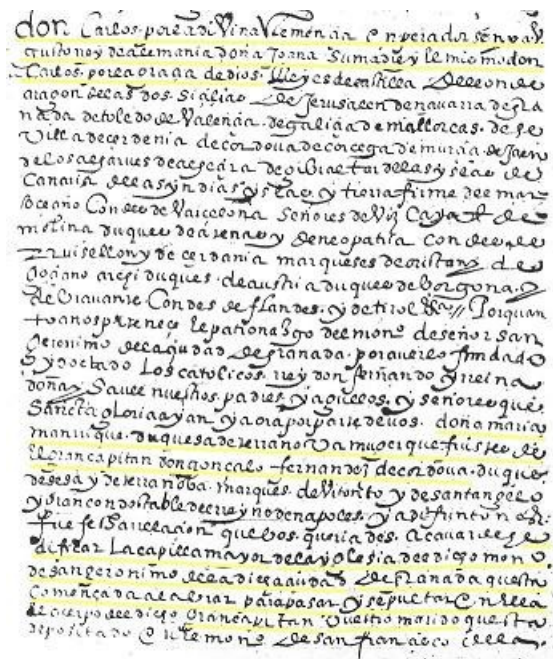 don Carlos por la divina clemencia enperador senper au
gusto rey de alemania doña Joana su madre y el mismo don
Carlos por la graçia de dios. Reyes de castilla de leon de
aragon de las dos siçilias de Jerusalen de navarra de gra
nada de toledo de valençia de galiçia de mallorcas. de se
villa de cerdenia de cordova de corcega de murcia. de Jaen
de los algarves de algecira de gibraltar de las yslas de
Canaria de las yndias yslas y tierra firme del mar
oceano Condes de varcelona Señores de vizcaya de
molina duques de atenas y de neopatria condes de
Ruisellon y de cerdania marqueses de oristan y de
goçiano archiduques de austria duques de borgoña y
de bravante Condes de flandes y de tirol // Porquan
to a nos pertenece el patronazgo del mono de señor san
geronimo de la çiudad de granada por averlo fundado
y dotado Los catolicos rey don fernando y reina
doña ysavel nuestros padres y aguelos y señores que
Sancta gloria ayan y aora por parte de vos doña maria
manrrique duquesa de terranova muger que fuistes de
el gran capitan don gonçalo fernandez de cordova duque
de sesa y de terranova marques de vitonto y de santangelo
y gran condestable del reyno de napoles y a defunto n
fue fe Relaçion que vos queriades acavar de e
dificar La capilla mayor de la yglesia del dicho mono
de san geronimo de la dicha çiudad de granada questa
Començada a labrar para pasar y sepultar en ella
el cuerpo del dicho gran capitan vuestro marido questa
depositado en el mono de san francisco de ella